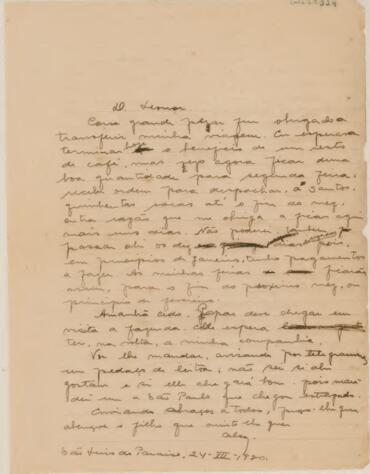 D. Leonor.
Com grande pezar fui obrigado a
transferir minha viagem. Eu esperava
terminar hoje o beneficio de um resto
de café, mas vejo agora ficar uma
boa quantidade para segunda feira;
recebi ordem para despachar, á Santos,
quinhentas saccas até o fim do mez,
outra razão que me obriga a ficar aqui
mais uns dias. Não poderei
passar ahi os dez dias pois,
em principios de Janeiro, tenho pagamentos
a fazer. As minhas ferias ficarão
assim, para o fim do proximo mez, ou
principio de fevereiro.
Amanhã cedo, Papae deve chegar em
visita a fazenda. Elle espera
ter, na volta, a minha companhia.
Vou lhe mandar, avisando por telegramma,
um pedaço de leitoa; não sei si ahi
gostam e si elle chegará bom, pois
dei um a São Paulo que chegou estragado.
Enviando abraços a todos, peço-lhe que
abençoe o filho que muito lhe quer
São Luis do 24-XII-1920.